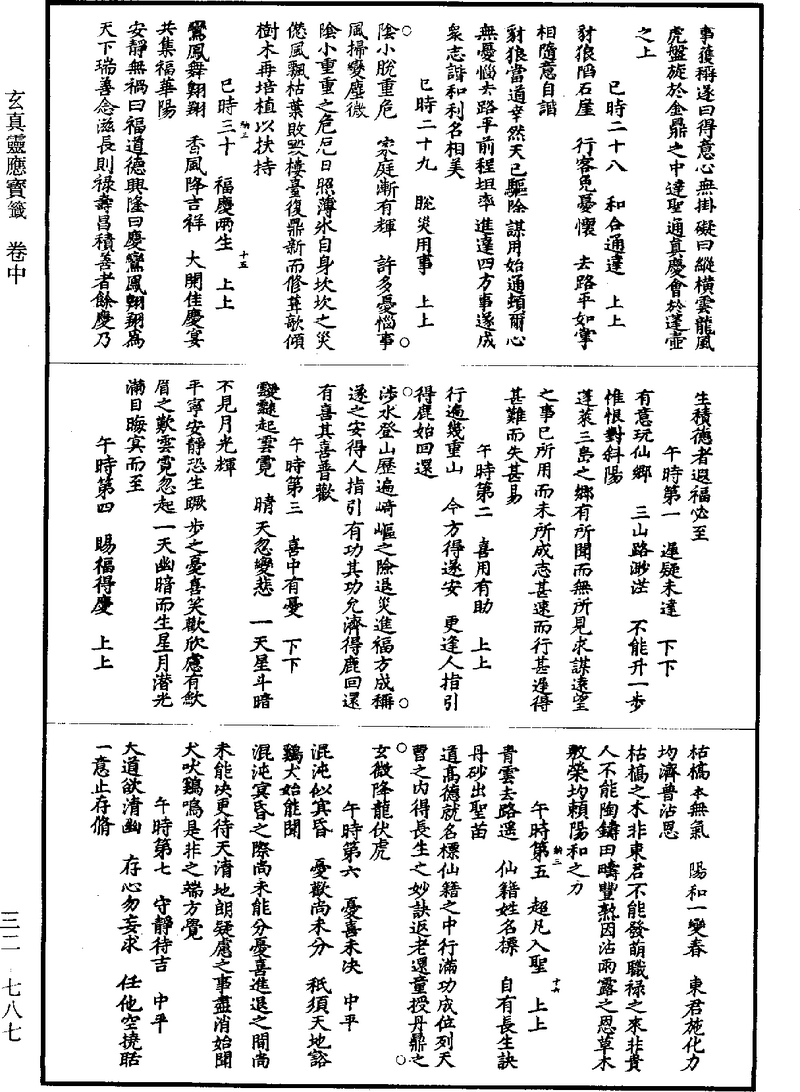 事獲稱遂曰得意心無掛礙曰縱橫雲龍風
虎盤旋於金鼎之中達聖通真慶會於蓬壺
之上
巳時二十八　和合通達　上上
豺狼陷石崖　行客免憂懷　去路平如掌
相隨意自諧
豺狼當通幸然天已驅除謀用始通頓爾心
無憂惱去路平前程坦率進達四方事遂成
衆志諧和利名相美
巳時二十九　脫災用事　上上
陰小脫重危　家庭漸有輝　許多憂惱事
風掃變塵微
陰小重重之危厄日照薄氷自身坎坎之災
僽風飄枯葉敗毀樓臺復鼎新而修葺欹傾
樹木再培植以扶持
巳時三十　福慶兩生　上上
鸞鳳舞翱翔　香風降吉祥　大開佳慶宴
共集福華陽
安靜無禍曰福道德興隆曰慶鸞鳳翱翔爲
天下瑞善念滋長則祿壽昌積善者餘慶乃
生積德者遐福必至
午時第一　遲疑未達　下下
有意玩仙鄉　三山路渺茫　不能升一步
惟恨對斜陽
蓬萊三島之鄉有所聞而無所見求謀遠望
之事已所用而未所成志甚速而行甚遲得
甚難而失甚易
午時第二　喜用有助　上上
行遍幾重山　今方得遂安　更逢人指引
得鹿始回還
涉水登山歷遍崎嶇之險退災進福方成稱
遂之安得人指引有功其功允濟得鹿回還
有喜其喜普歡
午時第三　喜中有憂　下下
靉靆起雲霓　晴天忽變悲　一天星斗暗
不見月光輝
平寧安靜恐生蹶步之憂喜笑歡欣慮有歛
眉之歎雲霓忽起一天幽暗而生星月潛光
滿目晦冥而至
午時第四　賜福得慶　上上
枯槁本無氣　陽和一變春　東君施化力
均濟普沾恩
枯槁之木非東君不能發萌職祿之來非貴
人不能陶鑄田疇豐熟因沾雨露之恩草木
敷榮均賴陽和之力
午時第五　超凡入聖　上上
青雲去路遥　仙籍姓名標　自有長生訣
丹砂出聖苗
道高德就名標仙籍之中行滿功成位列天
曹之内得長生之妙訣返老還童授丹鼎之
玄微降龍伏虎
午時第六　憂喜未決　中平
混沌似冥昏　憂歡尚未分　秖須天地谿
鷄犬始能聞
混沌冥昏之際尚未能分憂喜進退之間尚
未能決更待天清地朗疑慮之事盡消始聞
犬吠鷄鳴是非之端方覺
午時第七　守靜待吉　中平
大道欲清幽　存心勿妄求　任他空撓聒
一意止存脩
玄真靈應寶籤　卷中
三二　七八七